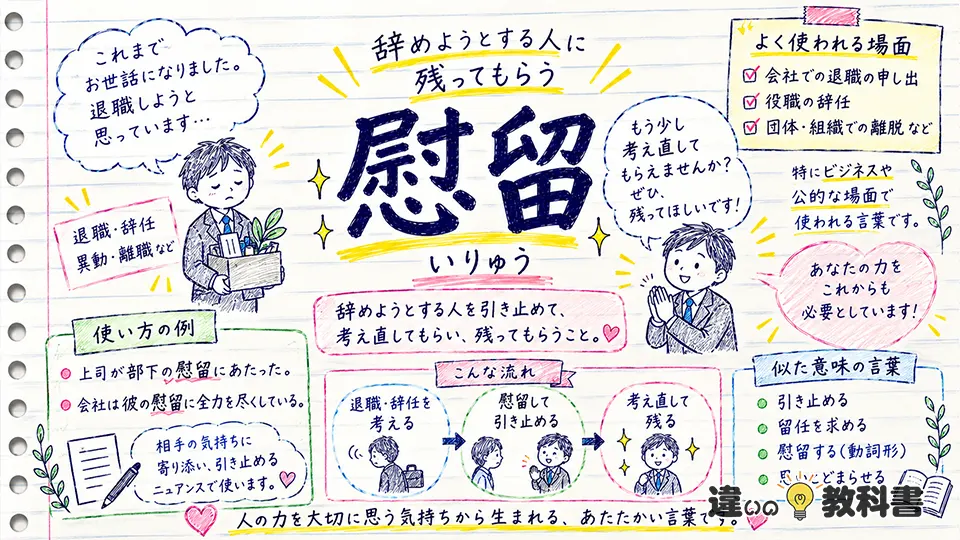 辞めようとする人に
残ってもらう
慰留
いりゅう
これまで
お世話になりました。
退職しようと
思っています…
退職・辞任
異動・離職など
もう少し
考え直して
もらえませんか?
ぜひ、
残ってほしいです!
よく使われる場面
会社での退職の申し出
役職の辞任
団体・組織での離脱 など
特にビジネスや
公的な場面で
使われる言葉です。
あなたの力を
これからも
必要としています!
辞めようとする人を引き止めて、
考え直してもらい、残ってもらうこと。
使い方の例
上司が部下の慰留にあたった。
会社は彼の慰留に全力を尽くしている。
相手の気持ちに
寄り添い、引き止める
ニュアンスで使います。
こんな流れ
退職・辞任を
考える
慰留して
引き止める
考え直して
残る
似た意味の言葉
引き止める
留任を求める
慰留する(動詞形)
どまらせる
人の力を大切に思う気持ちから生まれる、あたたかい言葉です。
違いの教科書